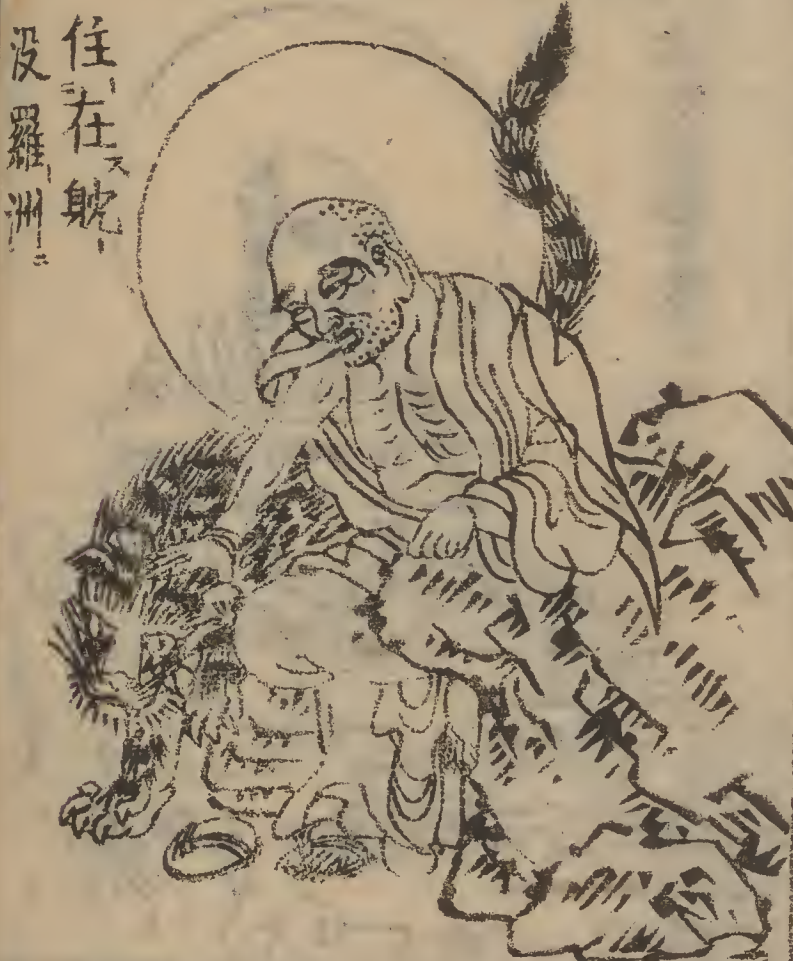 住在躭
没羅洲